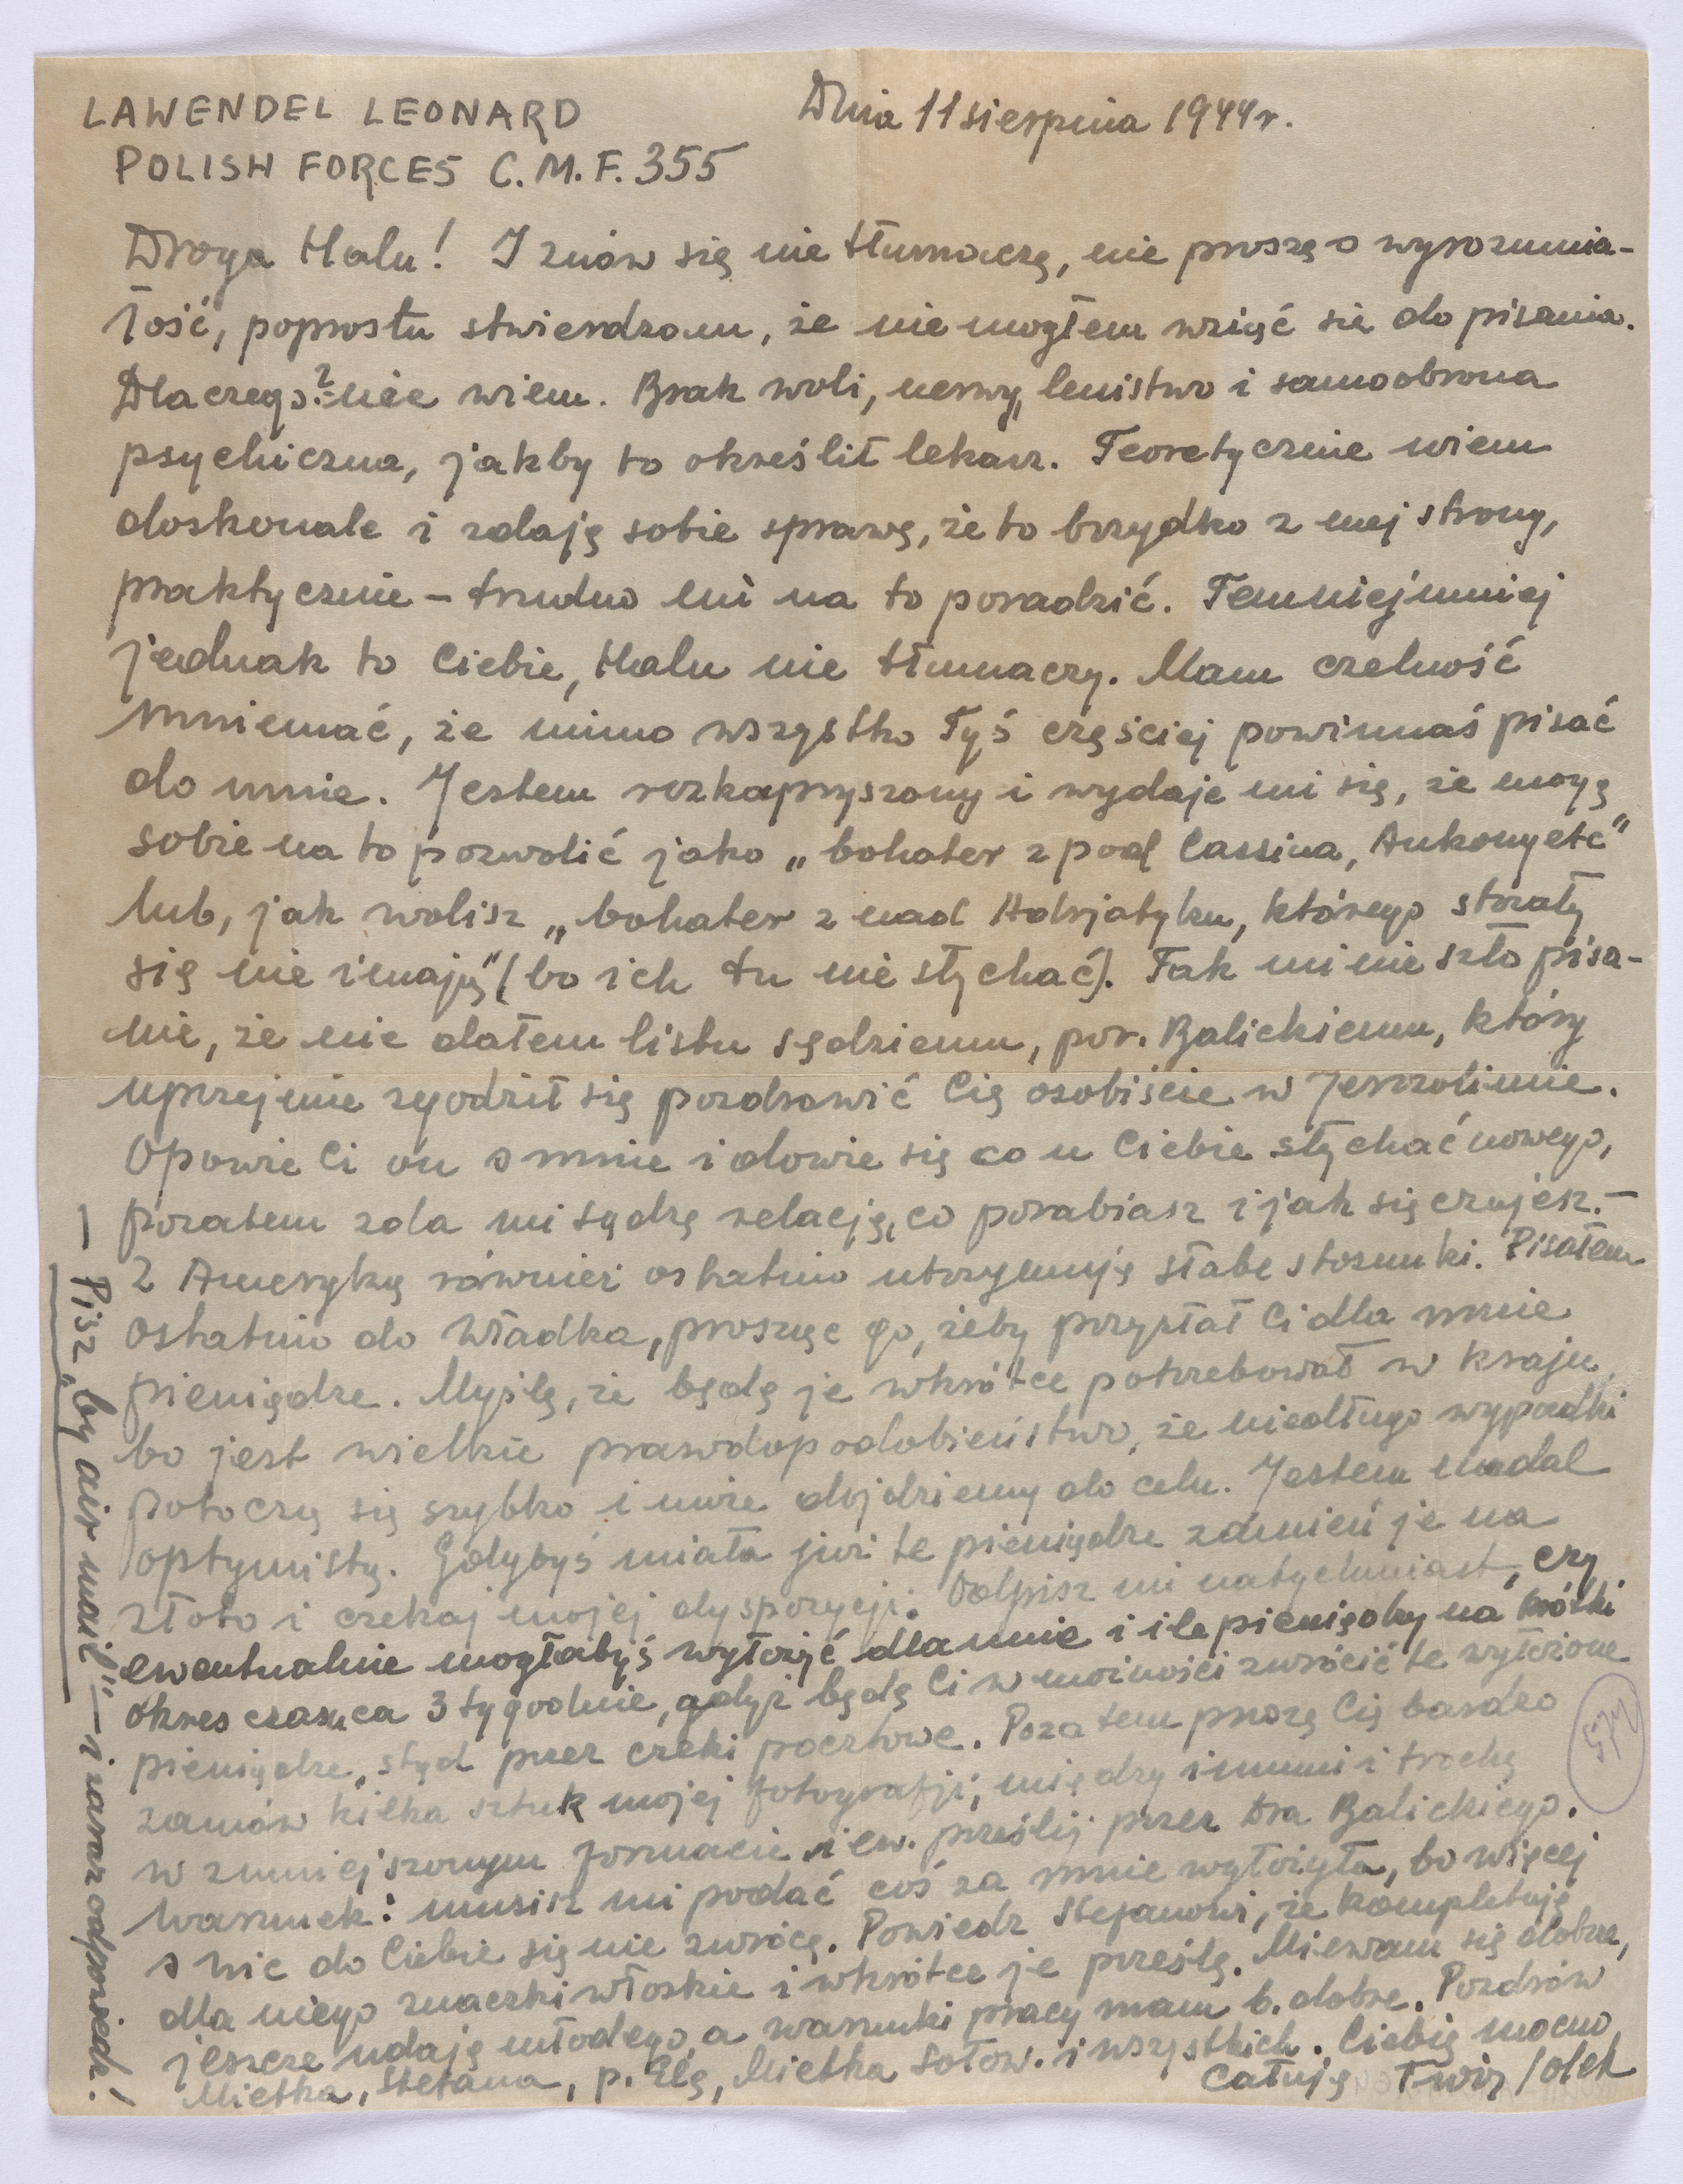 LAWENDEL LEONARD
POLISH FORCES C.M.F. 355
Dnia 11 sierpnia 1944 r.
Droga Halu! I znów się nie tłumaczę, nie proszę o wyrozumia-
łość, poprostu stwierdzam, że nie mogłem wziąć się do pisania.
Dlaczego? - nie wiem. Brak woli, nerwy, lenistwo i samoobrona
psychiczna, jakby to określił lekarz. Teoretycznie wiem
doskonale i zdaję sobie sprawę, że to brzydko z mej strony,
praktycznie – trudno mi na to poradzić. Temniejmniej
jednak to Ciebie, Halu nie tłumaczy. Mam czelność
mniemać, że mimo wszystko Tyś częściej powinnaś pisać
do mnie. Jestem rozkapryszony i wydaje mi się, że mogę
sobie na to pozwolić jako „bohater z pod Cassina, Ankony etc"
lub, jak wolisz „bohater z nad Adrjatyku, którego strzały
się nie imają" (bo ich tu nie słychać). Tak mi nie szło pisa-
nie, że nie dałem listu sędziemu, por. Balickiemu, który
uprzejmie zgodził się pozdrowić Cię osobiście w Jerozolimie.
Opowie Ci on o mnie i dowie się co u Ciebie słychać nowego,
pozatem zda mi sądzę relację, co porabiasz i jak się czujesz. –
Z Ameryką również ostatnio utrzymuję słabe stosunki. Pisałem
ostatnio do Władka, prosząc go, żeby przysłał Ci dla mnie
pieniądze. Myślę, że będę je wkrótce potrzebował w kraju,
bo jest wielkie prawdopodobieństwo, że niedługo wypadki
potoczą się szybko i może dojdziemy do celu. Jestem nadal
optymistą. Gdybyś miała już te pieniądze zamień je na
złoto i czekaj mojej dyspozycji. Odpisz mi natychmiast, czy
ewentualnie mogłabyś wyłożyć dla mnie i ile pieniędzy na krótki
okres czasu ca 3 tygodnie, gdyż będę Ci w możności zwrócić te wyłożone
pieniądze, stąd przez czeki pocztowe. Pozatem proszę Cię bardzo
zamów kilka sztuk mojej fotografji, między innemi i trochę
w zmniejszonym formacie i ew. prześlij przez Dra Balickiego.
Warunek: musisz mi podać coś za mnie wyłożyła, bo więcej
o nic do Ciebie się nie zwrócę. Powiedz Stefanowi, że kompletuję
dla niego znaczki włoskie i wkrótce je prześlę. Miewam się dobrze,
jeszcze udaję młodego, a warunki pracy mam b. dobre. Pozdrów
Mietka, Stefana, p. Elę, Mietka Sołow. i wszystkich. Ciebię mocno
Całuję Twój Lolek
– Pisz „by air mail" – i zaraz odpowiedz!
574